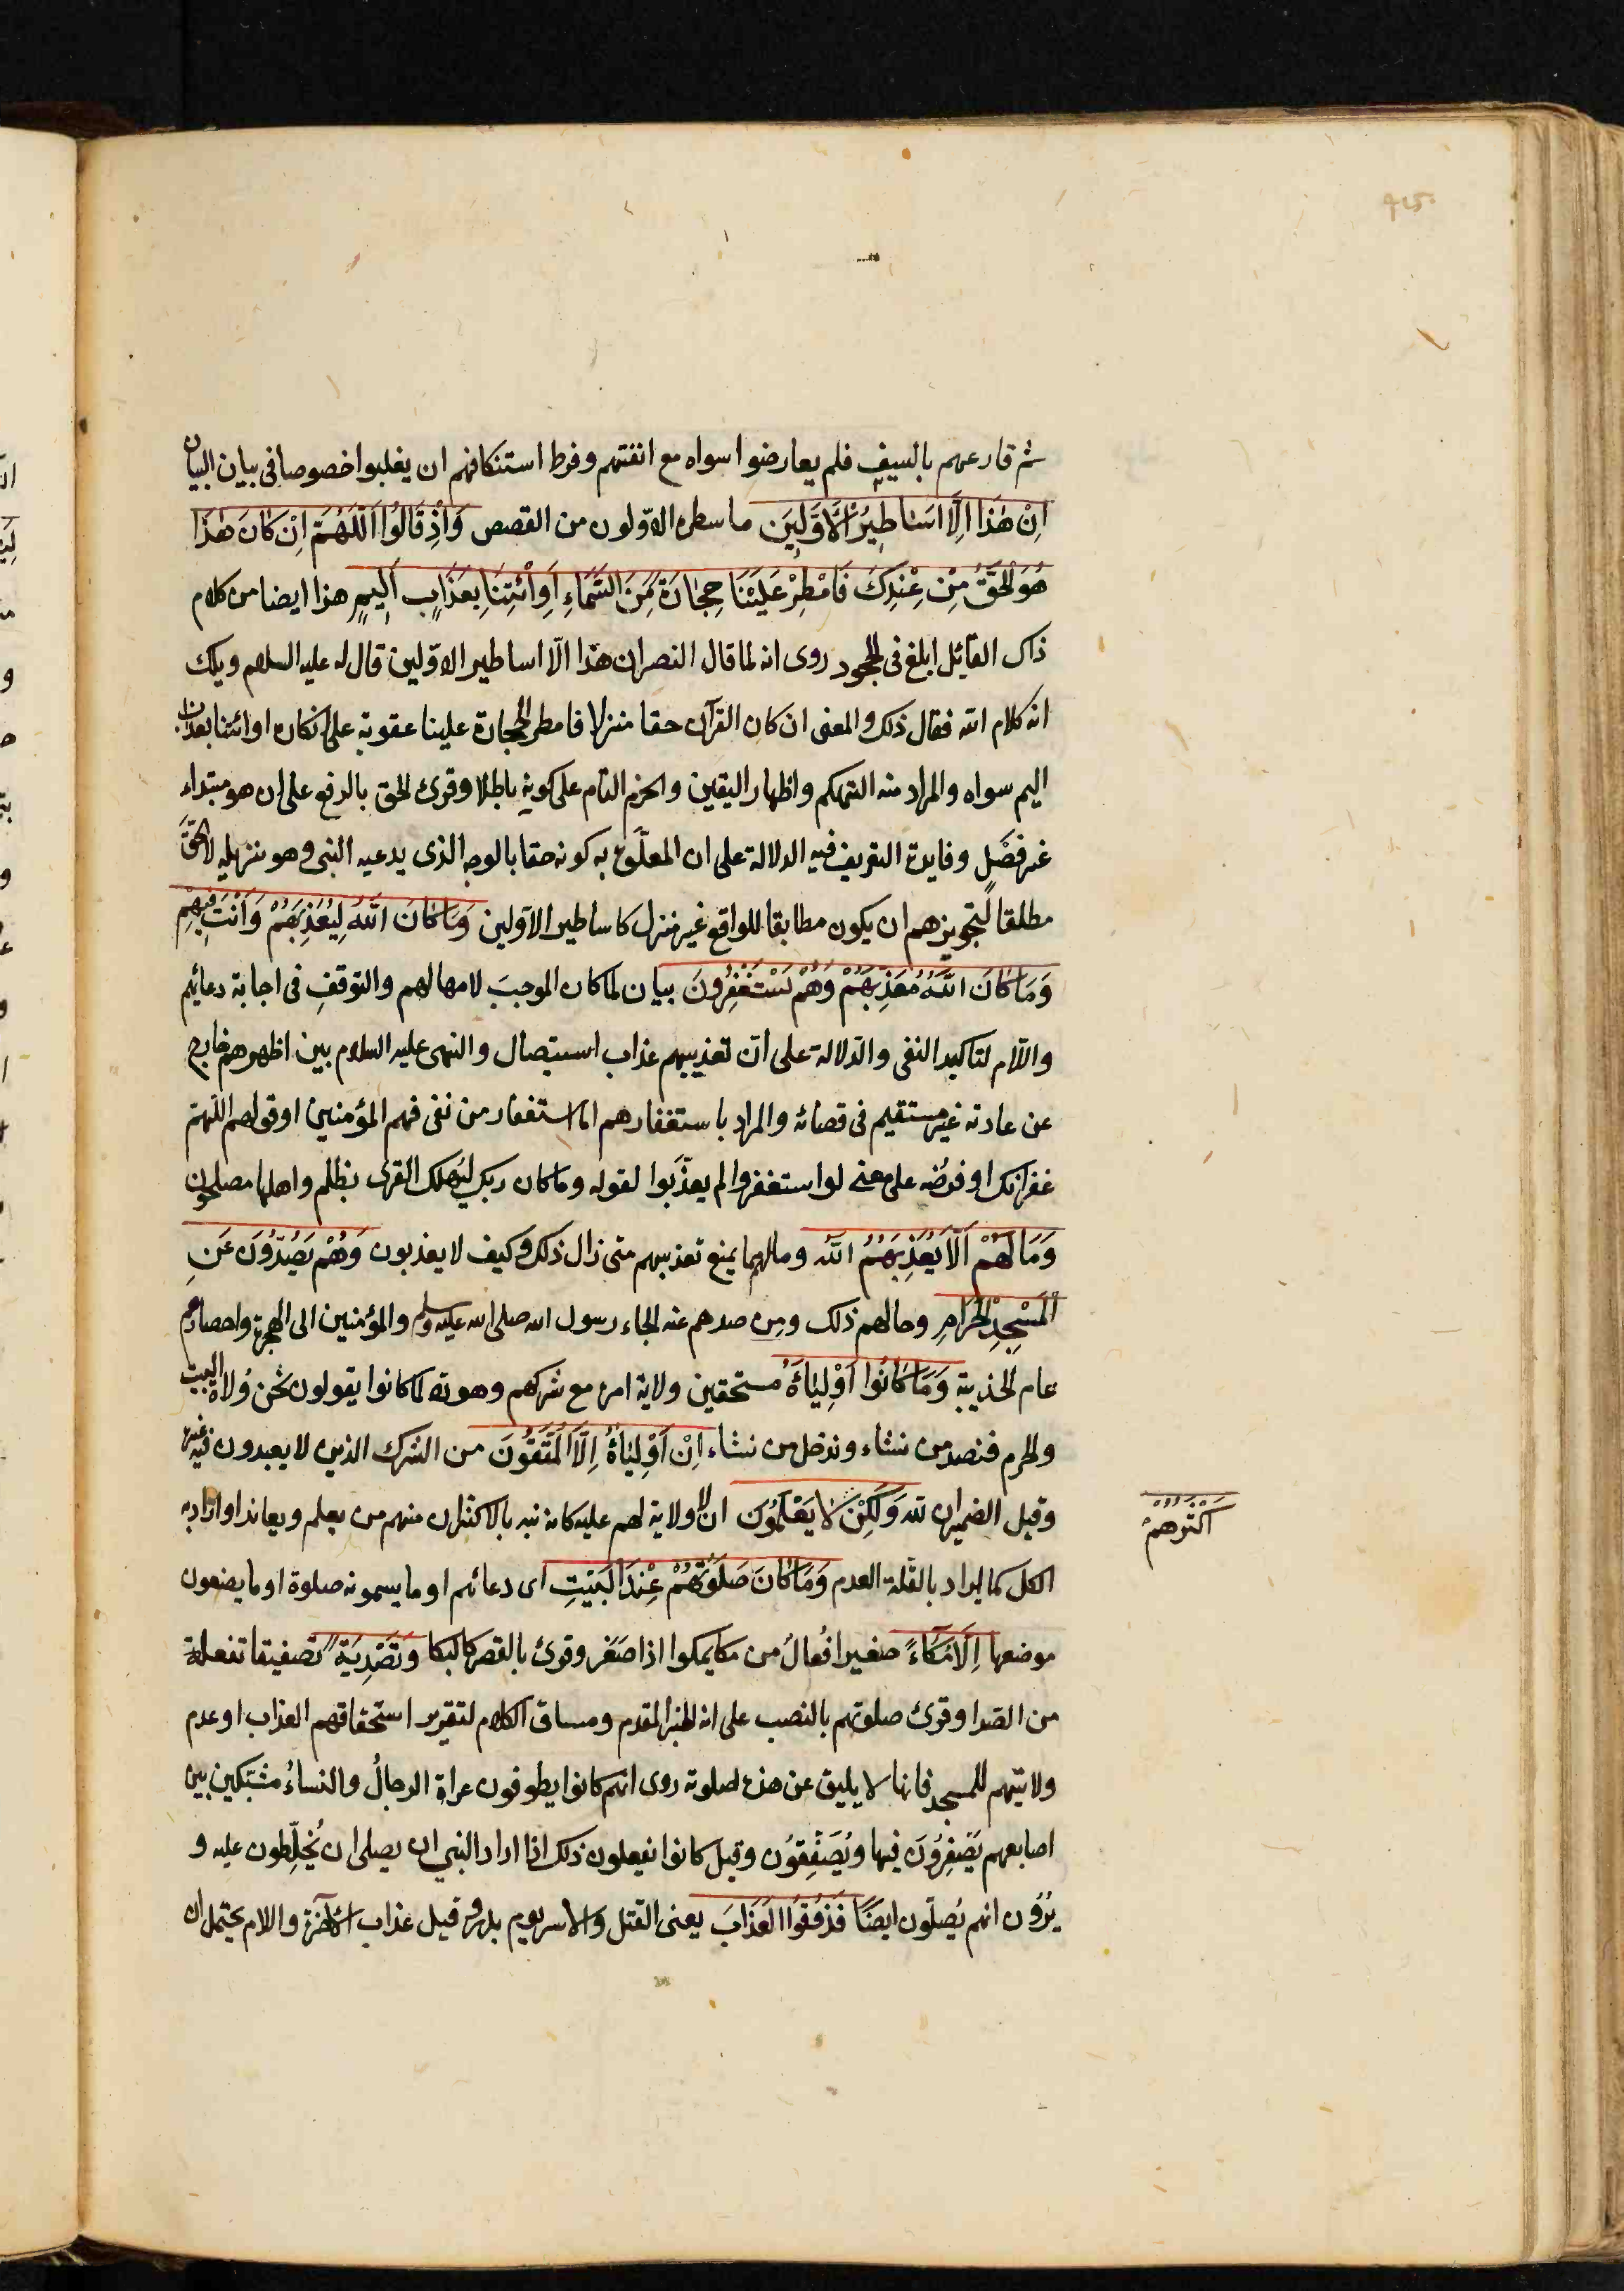 ثم قارعهم بالسيف فلم يعارضوا سواه مع انفتهم وفرط استنكافهم ان يغلبوا خصوصا فى بيان البيان
اِنْ هٰذَا اِلَّا اَسَاطِيرُ الْاَوَّلِينَ ما سطره الاوّلون من القصص وَاِذْ قَالُوا اللّٰهُمَّ اِنْ كَانَ هٰذَا
هُوَ الْحَقَّ مِنْ عِنْدِكَ فَاَمْطِرْ عَلَيْنَا حِجَارَةً مِنَ السَّمَاءِ اَوِ ائْتِنَا بِعَذَابٍ اَلِيمٍ هذا ايضا من كلام
ذاك القائل ابلغ فى الجحود روى انه لما قال النضر ان هذا الّا اساطير الاوّلين قال له عليه السلام ويلك
انه كلام الله فقال ذلك والمعنى ان كان القرآن حقا منزلا فامطر الحجارة علينا عقوبة على انكاره او ائتنا بعذاب
اليم سواه والمراد منه التهكم واظهار اليقين والجزم التام على كونه باطلا وقرئ الحق بالرفع على ان هو مبتداء
غير فصل وفايدة التعريف فيه الدلالة على ان المعلّق به كونه حقا بالوجه الذى يدعيه النبى وهو تنزيله لا الحقّ
مطلقا لتجويزهم ان يكون مطابقا للواقع غير منزل كاساطير الاوّلين وَمَا كَانَ اللّٰهُ لِيُعَذِّبَهُمْ وَاَنْتَ فِيهِمْ
وَمَا كَانَ اللّٰهُ مُعَذِّبَهُمْ وَهُمْ يَسْتَغْفِرُونَ بيان لما كان الموجبَ لامهالهم والتوقف فى اجابة دعائهم
واللّام لتاكيد النفى والدّلالة على انّ تعذيبهم عذاب استيصال والنبى عليه السلام بين اظهرهم خارج
عن عادته غير مستقيم فى قضائه والمراد باستغفارهم اما استغفار من بقى فيهم المؤمنين او قولهم اللّٰهمّ
غفرانك او فرضه على معنى لو استغفروا لم يعذّبوا لقوله وما كان ربك ليهلك القرى بظلم واهلها مصلحون
وَمَا لَهُمْ اَلَّا يُعَذِّبَهُمُ اللّٰهُ وما لهم مما يمنع تعذيبهم متى زال ذلك وكيف لا يعذبون وَهُمْ يَصُدُّونَ عَنِ
الْمَسْجِدِ الْحَرَامِ وحالهم ذلك ومن صدهم عنه الجاء رسول الله صلى الله عليه وسلم والمؤمنين الى الهجرة واحصارهم
عام الحديبية وَمَا كَانُوا اَوْلِيَاءَهُ مستحقين ولاية امره مع شركهم وهو رد لما كانوا يقولون نحن ولاة البيت
والحرم فنصد من نشاء وندخل من نشاء اِنْ اَوْلِيَاؤُهُ اِلَّا الْمُتَّقُونَ من الشرك الذين لا يعبدون فيه غيره
وقيل الضميران لله وَلٰكِنَّ لَا يَعْلَمُونَ ان لا ولاية لهم عليه كانه نبه بالاكثر ان منهم من يعلم ويعاند او اراد به
اكثرهم
الكل كما يراد بالقلة العدم وَمَا كَانَ صَلٰوتُهُمْ عِنْدَ الْبَيْتِ اى دعائهم او ما يسمونه صلوة او ما يضعون
موضعها اِلَّا مُكَاءً صفيرا فُعالٌ من مكا يمكوا اذا صَفَر وقرئ بالقصر كالبكا وَتَصْدِيَةً تصفيقا تفعلة
من الصدا وقرئ صلوتهم بالنصب على انه الخبر المقدم ومساق الكلام لتقرير استحقاقهم العذاب او عدم
ولايتهم للمسجد فانها لا يليق عن هذه صلوته روى انهم كانوا يطوفون عراة الرجالُ والنساءُ مشتبكين بين
اصابعهم يَصْفِرُونَ فيها ويُصَفِّقُون وقيل كانوا يفعلون ذلك اذا اراد النبى ان يصلى ان يُخلِّطون عليه و
يُرُون انهم يُصلّون ايضًا فَذُوقُوا الْعَذَابَ يعنى القتل والاسر يوم بدر وقيل عذاب الآخرة واللام يحتمل ان